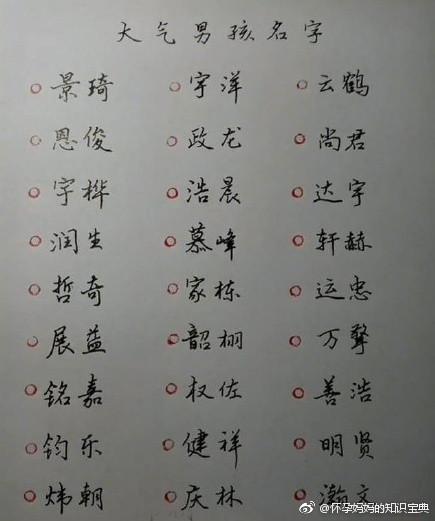 大气男孩名字
景琦 宇洋 云鹤
恩俊 政龙 尚君
宇桦 浩晨 达宇
润生 慕峰 轩赫
哲奇 家栋 运忠
展益 韶栩 万擎
铭嘉 权佐 善浩
钧乐 健祥 明贤
炜朝 庆林 瀚文
@怀孕妈妈的知识宝典